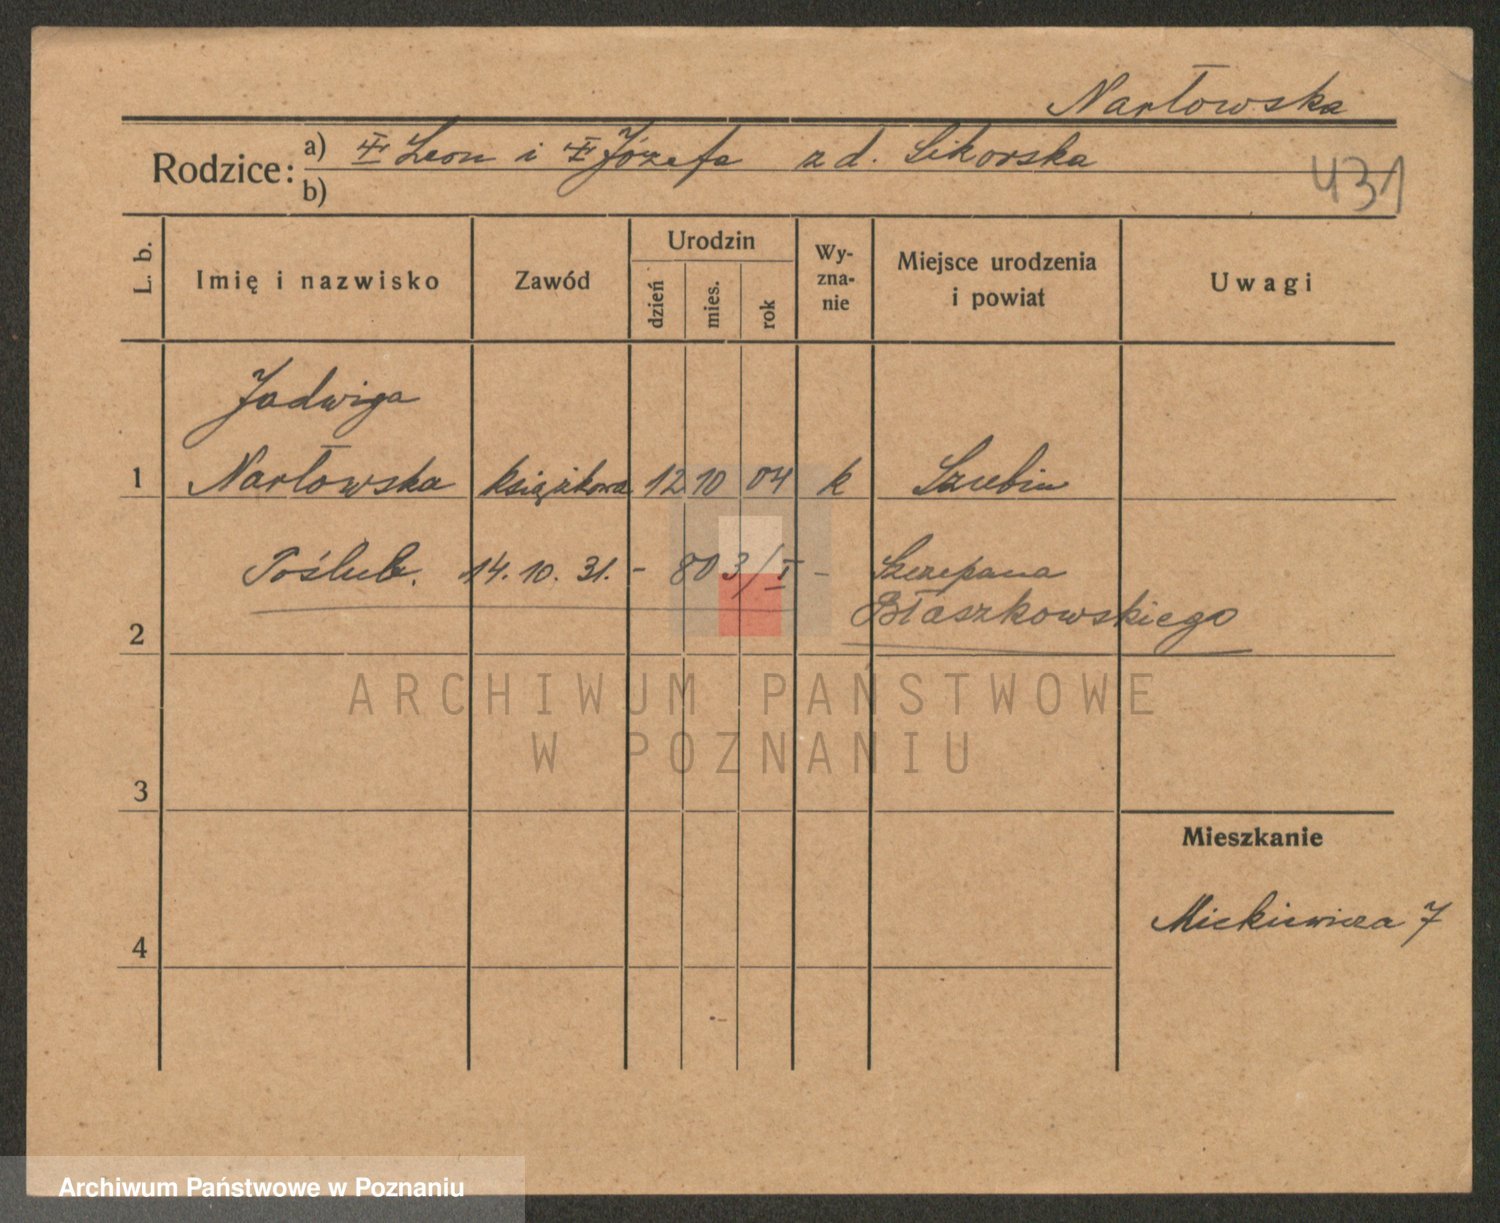 Narłowska
Rodzice: a) Leon i Józefa z d. Sikorska
b)
431
L. b.
Imię i nazwisko
Zawód
Urodzin
dzień
mies.
rok
Wy-
zna-
nie
Miejsce urodzenia
i powiat
Uwagi
Jadwiga
1 Narłowska książkowa 12 10 04 k Szubin
Poślub. 14. 10. 31. - 80 3/I - Szczepana
2 Błaszkowskiego
ARCHIWUM PAŃSTWOWE
W POZNANIU
3
Mieszkanie
Mickiewicza 7
4
Archiwum Państwowe w Poznaniu